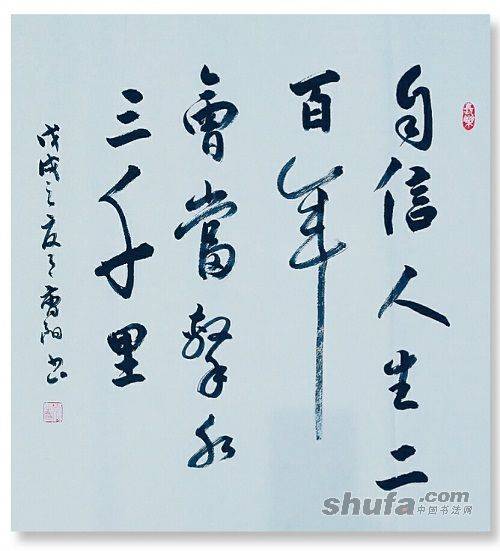 長樂
自信人生二
百年
會當擊水
三千里
戊戌之夏月 书
shufa.com
中国书法网